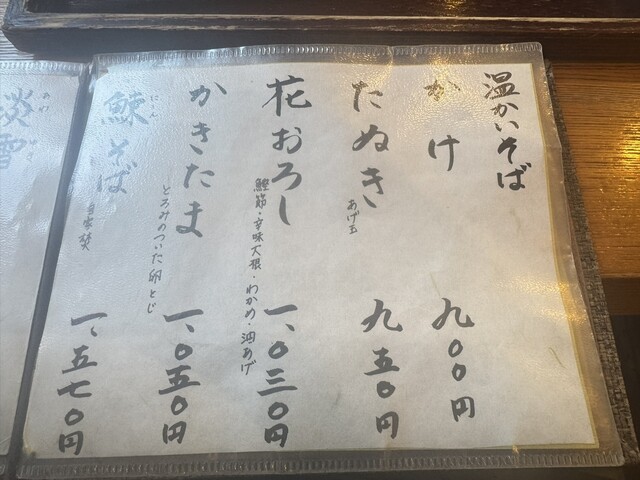 温かいそば
かけ 九〇〇円
たぬき あげ玉 九五〇円
花おろし 鰹節・辛味大根・わかめ・油あげ 一、〇三〇円
かきたま とろみのついた卵とじ 一、〇五〇円
鯟そば にしん 自家製 一、五七〇円
淡雪 あわゆき